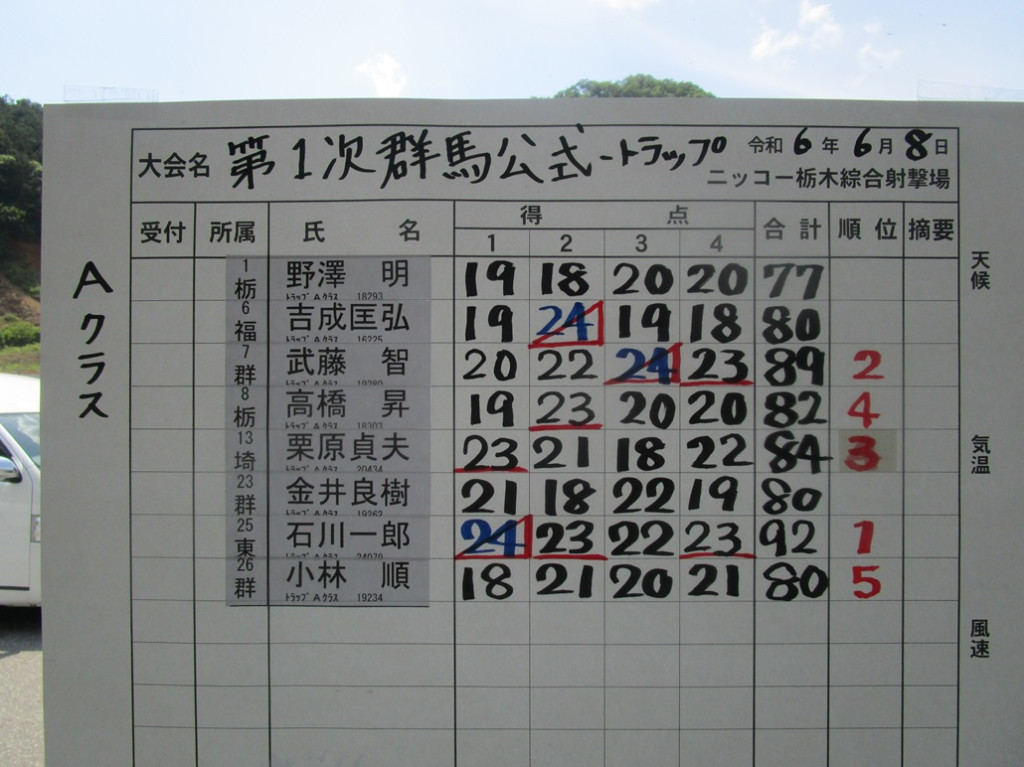 大会名 第1次群馬公式-トラップ 令和 6 年 6 月 8 日
ニッコー栃木綜合射撃場
受付 所属 氏 名 得 点 合 計 順 位 摘要
1 2 3 4
Aクラス
天候
気温
風速
1 栃 野澤 明 19 18 20 20 77
トラップ Aクラス 18293
6 福 吉成匡弘 19 24 19 18 80
16225
7 群 武藤 智 20 22 24 23 89 2
19280
8 栃 高橋 昇 19 23 20 20 82 4
18303
13 埼 栗原貞夫 23 21 18 22 84 3
20434
23 群 金井良樹 21 18 22 19 80
19262
25 東 石川一郎 24 23 22 23 92 1
トラップ Aクラス 24079
26 群 小林 順 18 21 20 21 80 5
トラップ Aクラス 19234